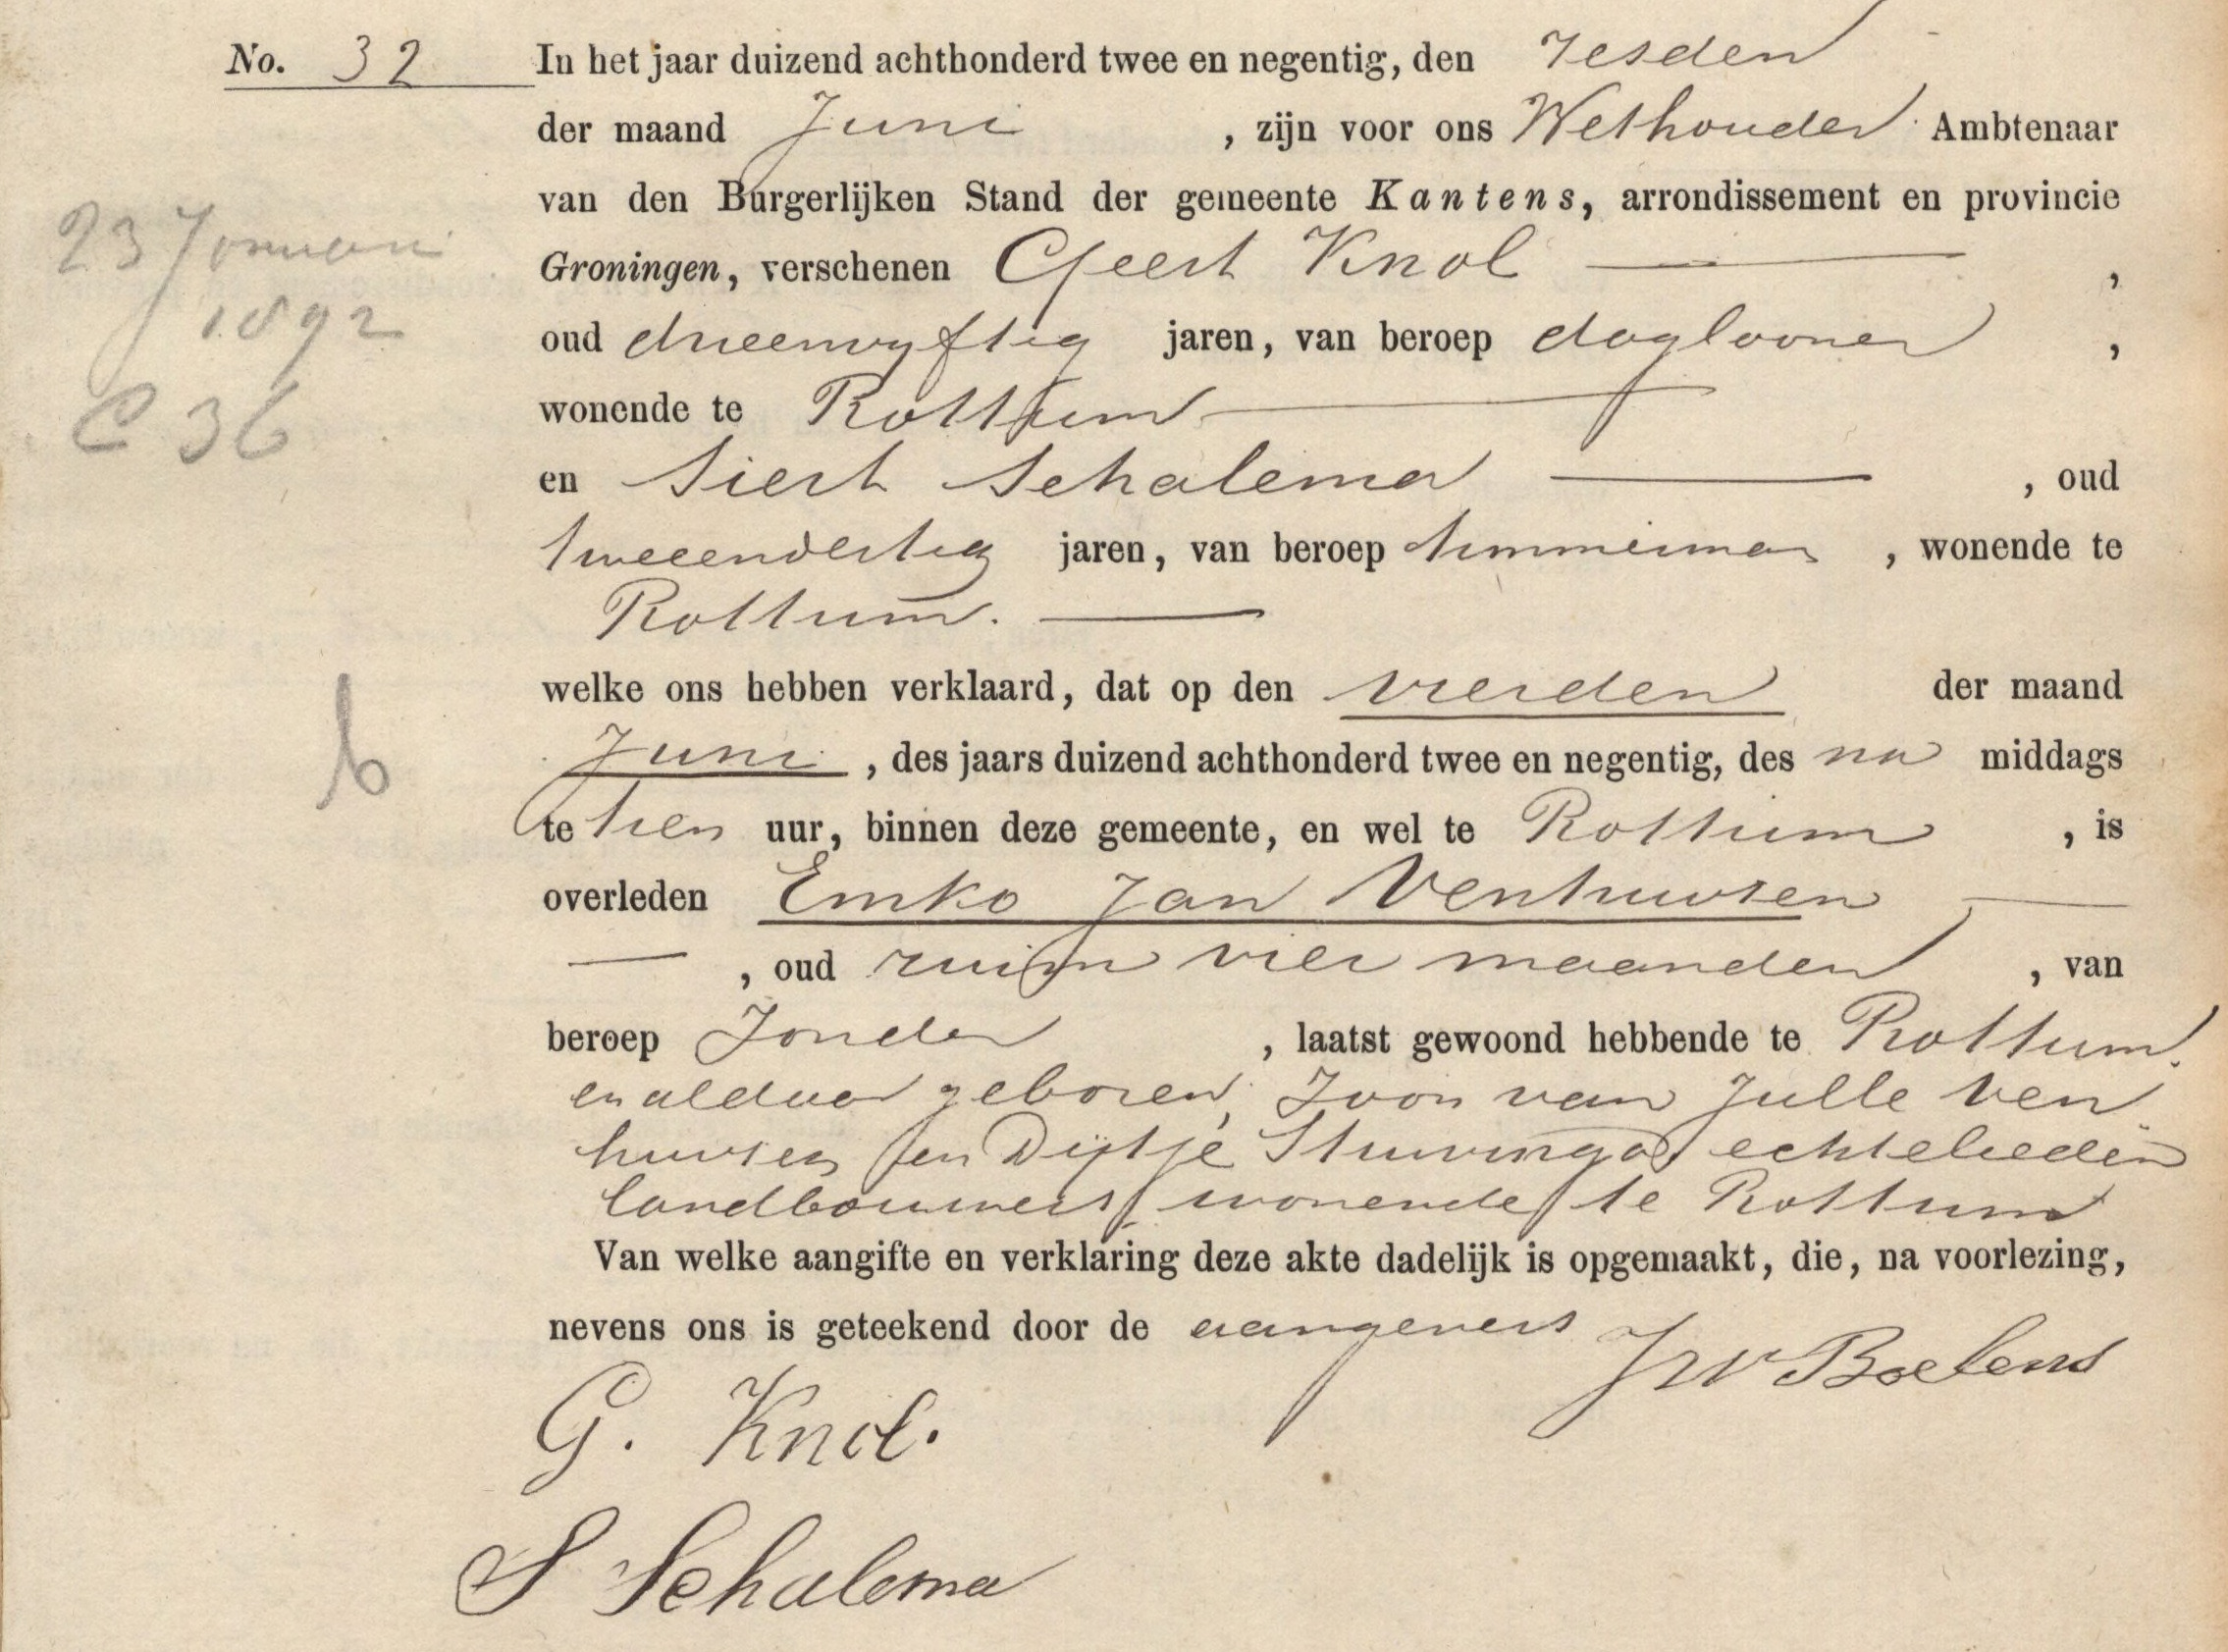 No. 32
In het jaar duizend achthonderd twee en negentig, den zesden
der maand Juni , zijn voor ons Wethouder Ambtenaar
van den Burgerlijken Stand der gemeente Kantens, arrondissement en provincie
Groningen, verschenen Geert Knol ,
oud drieenvyftig jaren, van beroep daglooner ,
wonende te Rottum
en Siert Schalema , oud
tweeendertig jaren, van beroep timmerman , wonende te
Rottum.
welke ons hebben verklaard, dat op den vierden der maand
Juni , des jaars duizend achthonderd twee en negentig, des na middags
te tien uur, binnen deze gemeente, en wel te Rottum , is
overleden Emko Jan Venhuizen
, oud ruim vier maanden , van
beroep Zonder , laatst gewoond hebbende te Rottum.
en aldaar geboren, Zoon van Julle Ven
huizen en Dijtje Stuivinga echtelieden
landbouwers wonende te Rottum
Van welke aangifte en verklaring deze akte dadelijk is opgemaakt, die, na voorlezing,
nevens ons is geteekend door de aangevers
JW Boelens
G. Knol.
S Schalema
23 Januari
1892
C 36
b